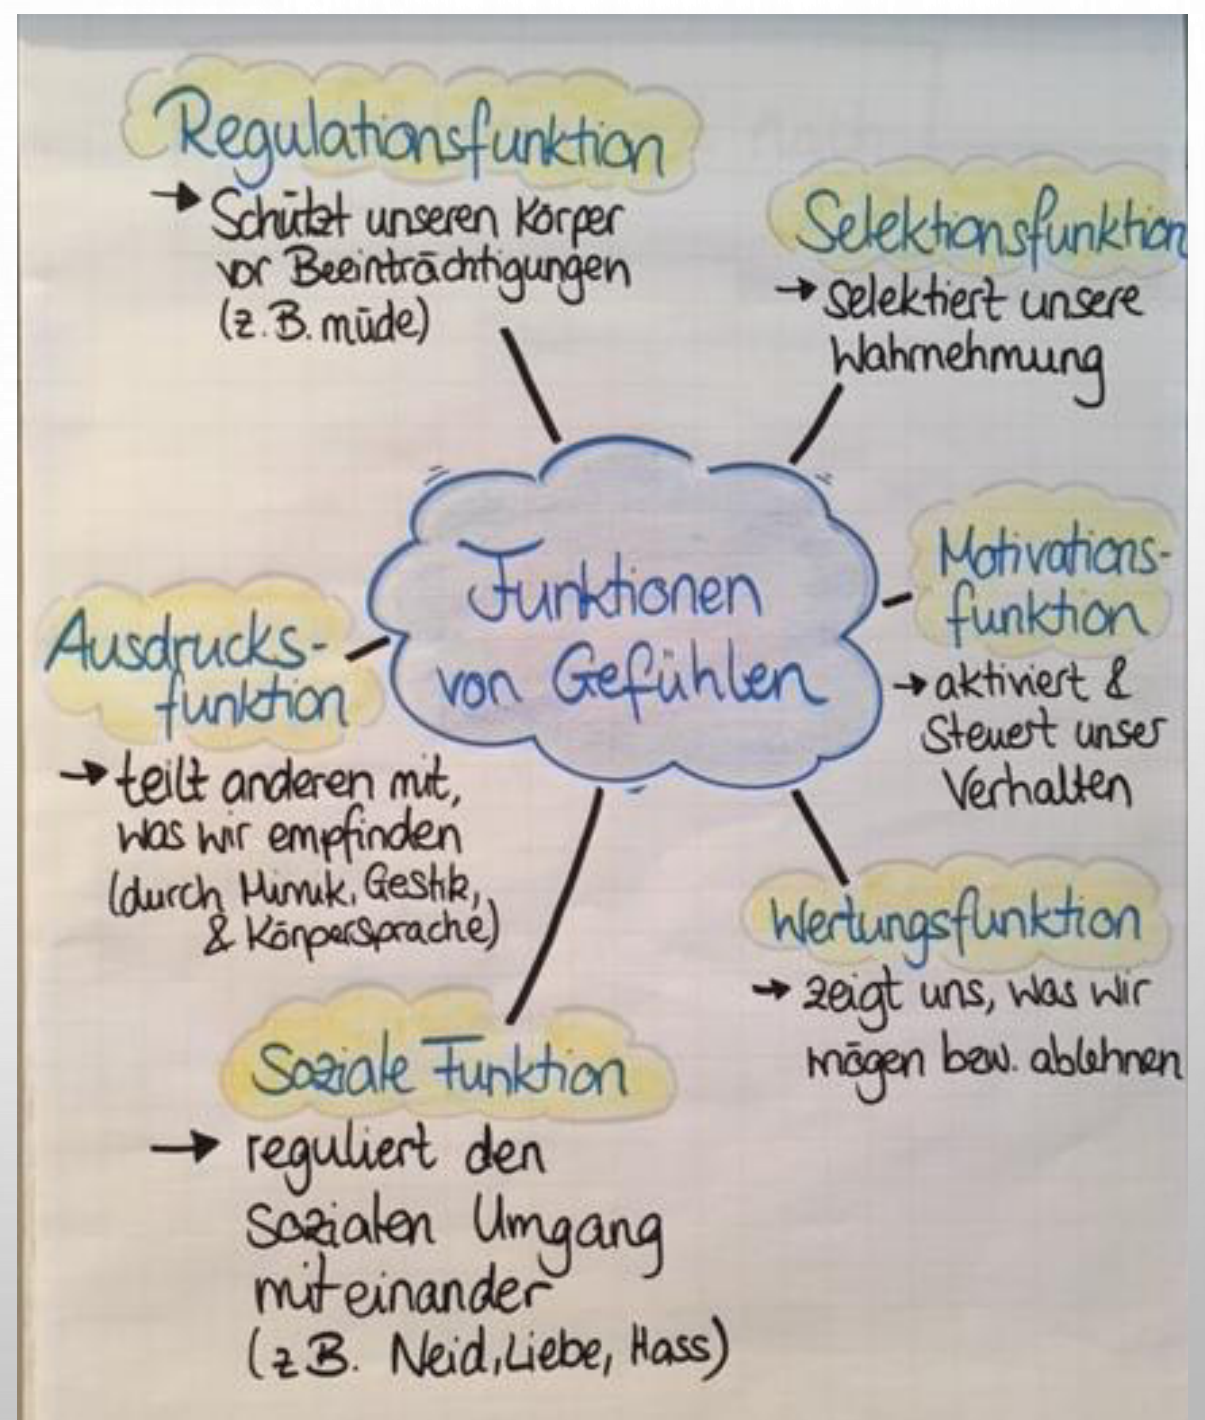 Regulationsfunktion
→ Schützt unseren Körper
vor Beeinträchtigungen
(z.B. müde)
Selektionsfunktion
→ selektiert unsere
Wahrnehmung
Funktionen
von Gefühlen
Motivations-
funktion
→ aktiviert &
Steuert unser
Verhalten
Ausdrucks-
funktion
→ teilt anderen mit,
was wir empfinden
(durch Mimik, Gestik,
& Körpersprache)
Wertungsfunktion
→ zeigt uns, was wir
mögen bzw. ablehnen
Soziale Funktion
→ reguliert den
sozialen Umgang
miteinander
(z.B. Neid, Liebe, Hass)